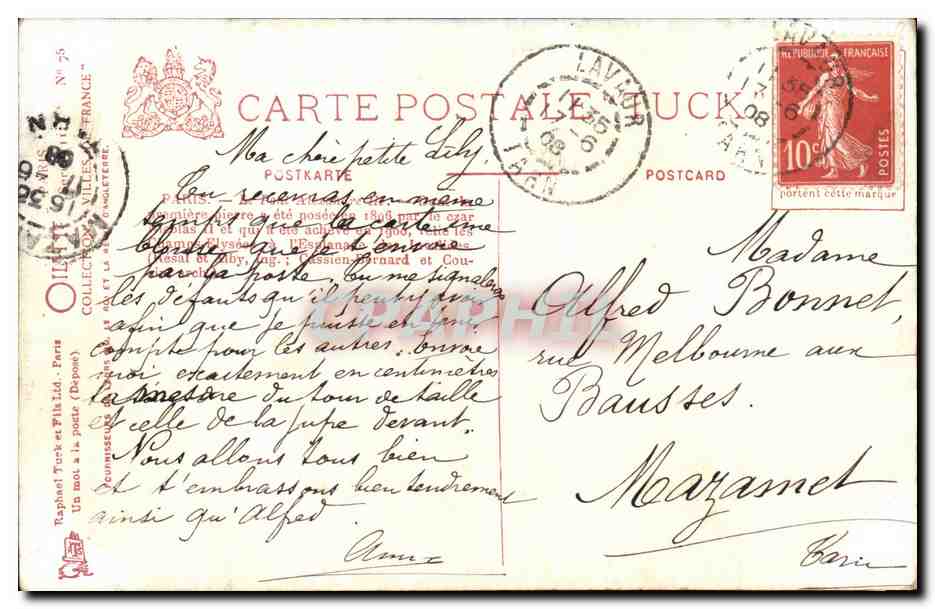 CARTE POSTALE TUCK
POSTKARTE
POSTCARD
LAVAUR
17 35
TARN
REPUBLIQUE FRANÇAISE
10c
POSTES
portent cette marque
Ma chère petite Lily,
Tu recevras en même
temps que la carte une
blouse que je t'envoie
par la poste, tu me signaleras
les défauts qu'il peut y avoir
afin que je puisse en tenir
compte pour les autres. Envoie
moi exactement en centimètres
la mesure du tour de taille
et celle de la jupe devant.
Nous allons tous bien
et t'embrassons bien tendrement
ainsi qu'Alfred.
PARIS.
première pierre a été posée en 1896 par le czar
Nicolas II et qui a été achevé en 1900, relie les
Champs-Elysées à l'Esplanade
(Résal et Alby, Ing.; Cassien-Bernard et Cou-
Madame
Alfred Bonnet,
rue Melbourne aux
Bausses.
Mazamet
Tarn
Raphael Tuck et Fils Ltd.- Paris
Un mot à la poste (Déposé)
FOURNISSEURS DE LEURS M.M. LE ROI ET LA REINE D'ANGLETERRE.
OILETTE
COLLECTION "VILLES DE FRANCE"
No 75
CARPHIL